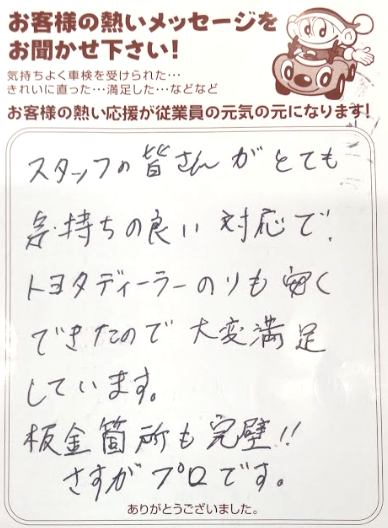 お客様の熱いメッセージを
お聞かせ下さい!
気持ちよく車検を受けられた…
きれいに直った…満足した…などなど
お客様の熱い応援が従業員の元気の元になります!
スタッフの皆さんがとても
気持ちの良い対応で、
トヨタディーラーのりも安く
できたので大変満足
しています。
板金箇所も完璧!!
さすがプロです。
ありがとうございました。